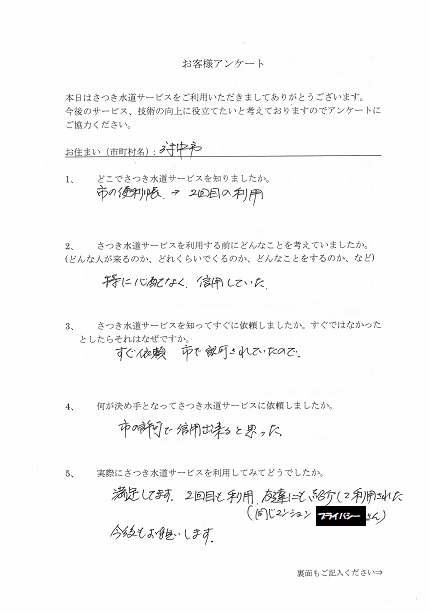 お客様アンケート
本日はさつき水道サービスをご利用いただきましてありがとうございます。
今後のサービス、技術の向上に役立てたいと考えておりますのでアンケートに
ご協力ください。
お住まい（市町村名）：府中市
1、 どこでさつき水道サービスを知りましたか。
市の便利帳 → 2回目の利用
2、 さつき水道サービスを利用する前にどんなことを考えていましたか。
(どんな人が来るのか、どれくらいでくるのか、どんなことをするのか、など)
特に心配なく、信用していた。
3、 さつき水道サービスを知ってすぐに依頼しましたか。すぐではなかった
としたらそれはなぜですか。
すぐ依頼 市で許可されていたので。
4、 何が決め手となってさつき水道サービスに依頼しましたか。
市の許可で信用出来ると思った。
5、 実際にさつき水道サービスを利用してみてどうでしたか。
満足してます。2回目も利用、友達にも紹介して利用された
(同じマンション プライバシー さん)
今後もお願いします。
裏面もご記入ください⇒